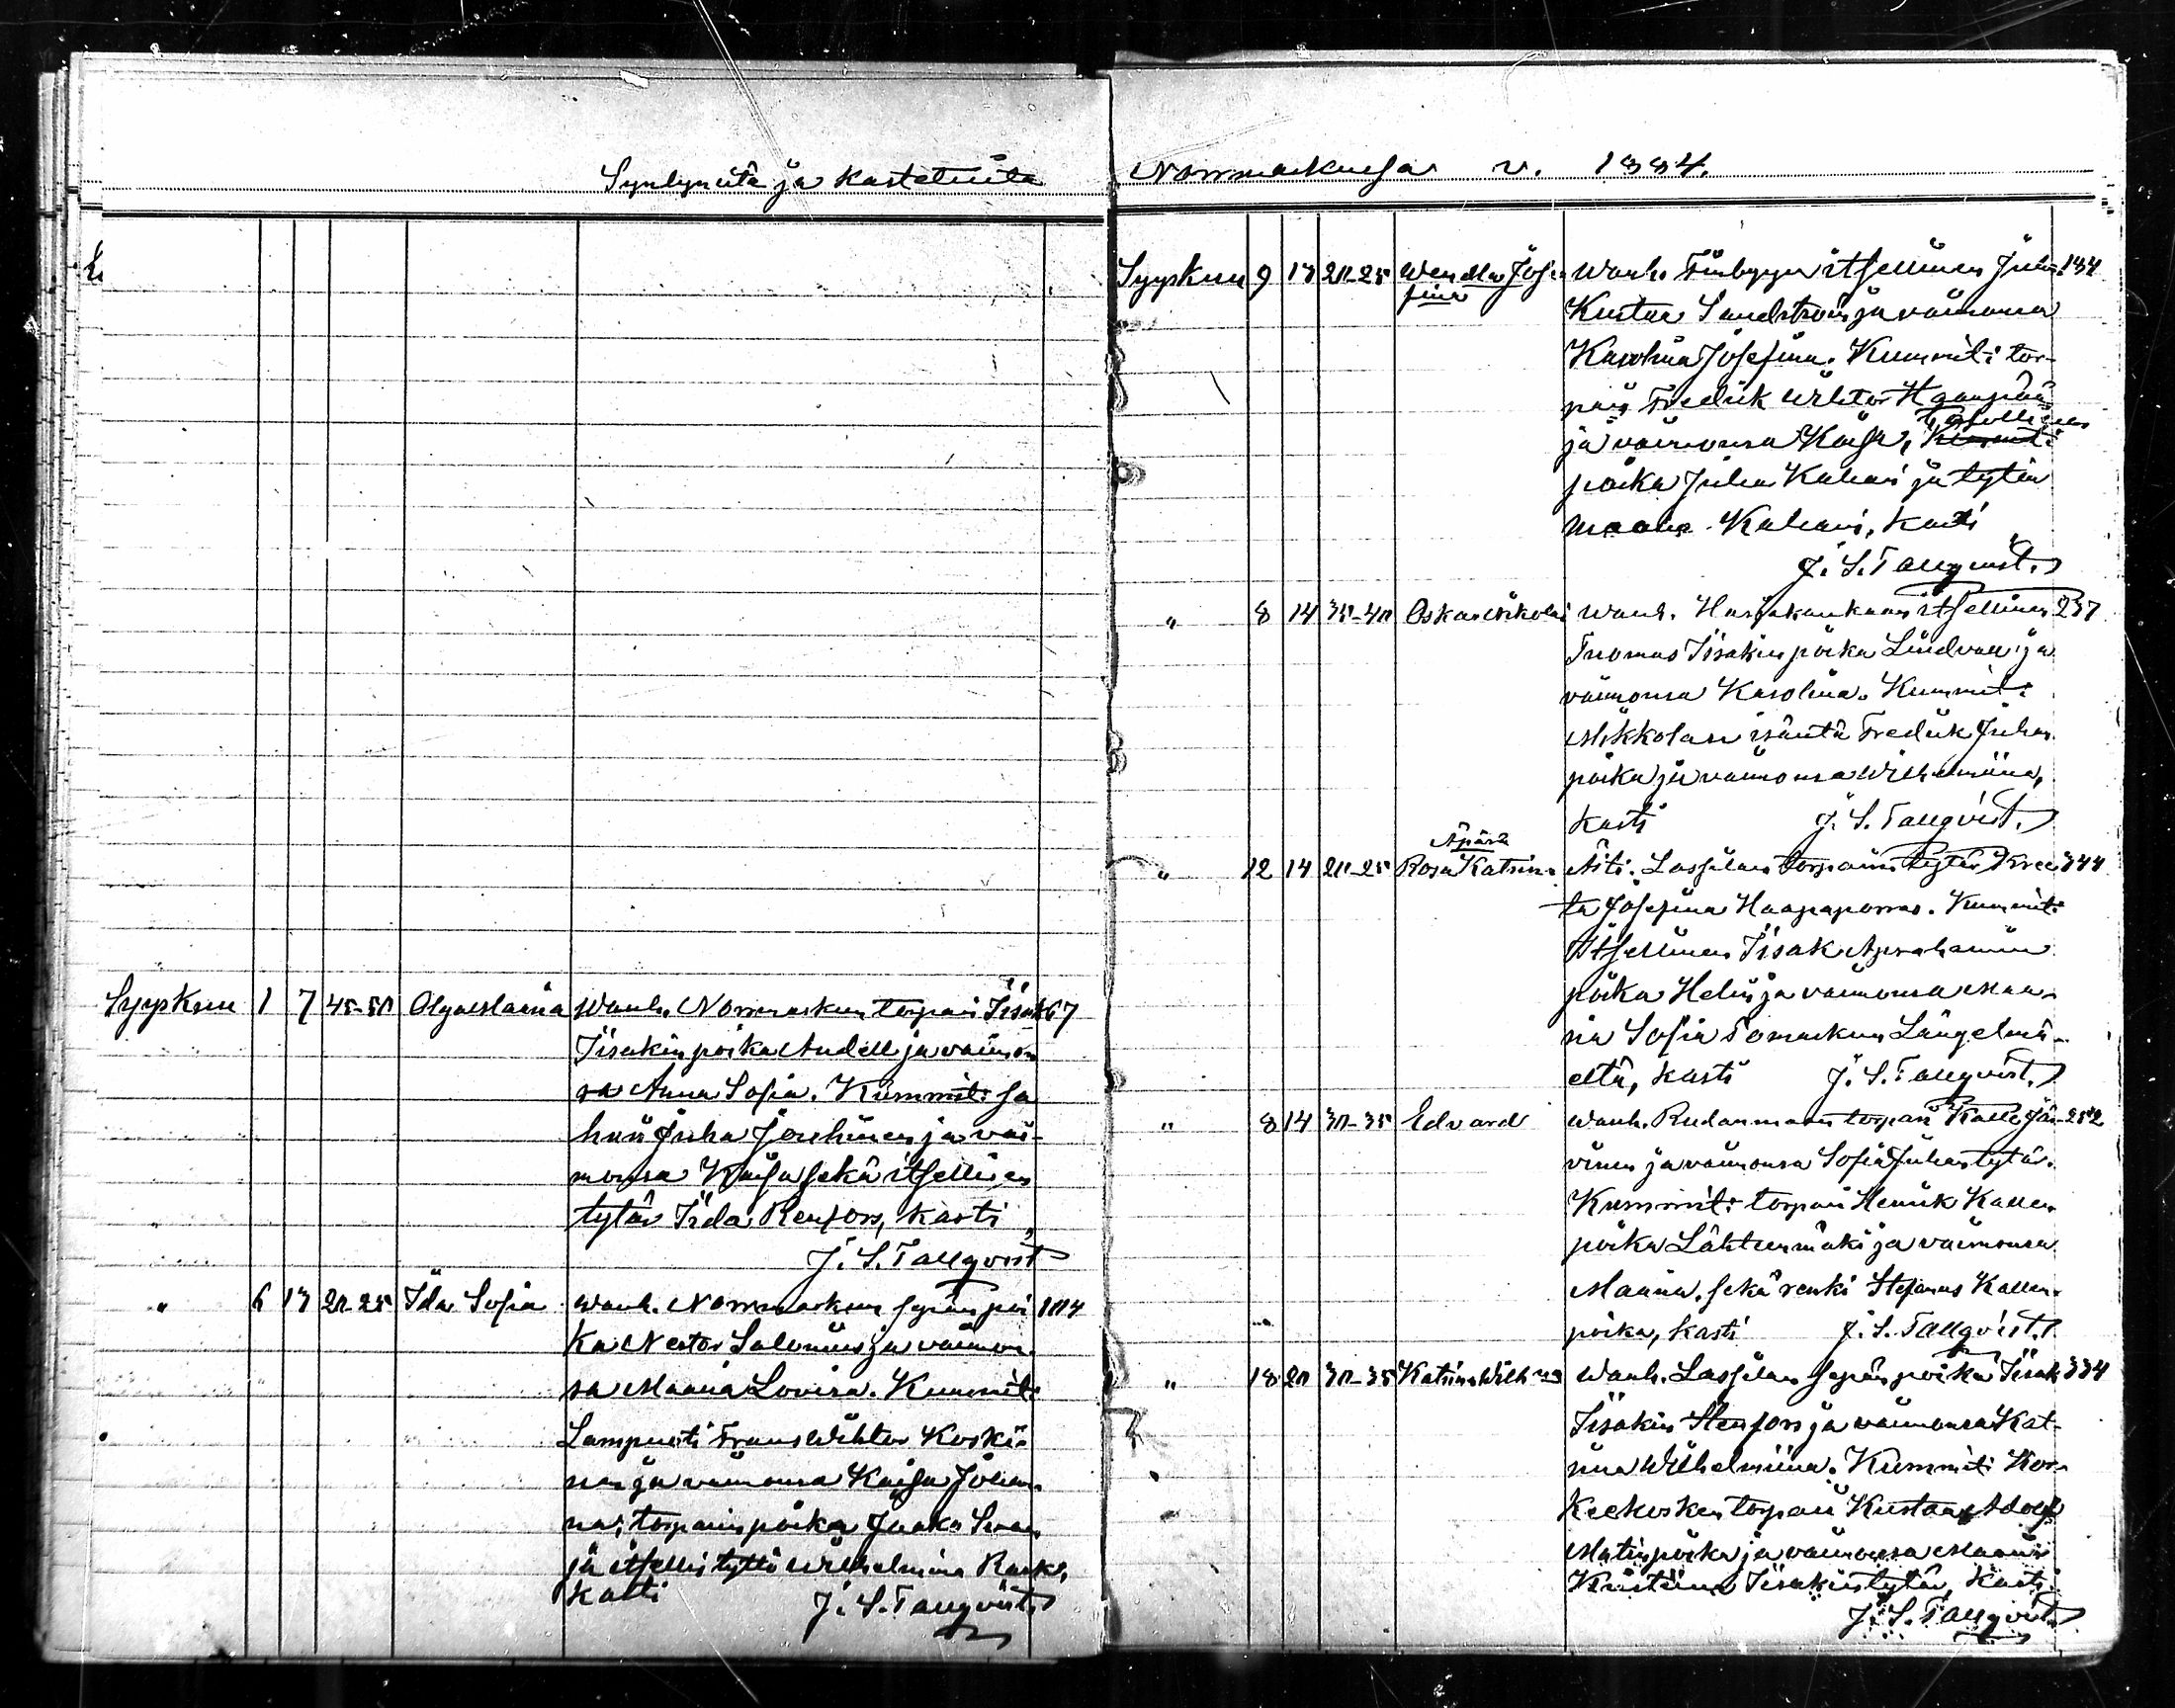 Syntyneitä ja kastetuita
Syyskuu 1 7 45-50 Olga Maria Wanh. Norrmarkun torpari Iisak 67
Iisakinpoika Andell ja vaimon
sa Anna Sofia. Kummit:
Juha Jouhinen ja vai-
monsa Kaisa sekä itsellisen
tytär Iida Renfors, kasti
J. S. Tallqvist
" 6 13 20-25 Ida Sofia Wanh. Norrmarkun sepän poi
ka Nestor Salonius ja vaimon
sa Maria Lovisa. Kummit:
Lampuoti Frans Wihtor Koski-
nen ja vaimonsa Kaisa Johan
na, torparin poika Jaako
ja itsellis tyttö Wilhelmina
kasti J. S. Tallqvist
Norrmarkussa v. 1884.
Syyskuu 9 13 20-25 Wendla Jose Wanh. Finbyyn itsellinen Juha 134
fina
Kustaa Sandström ja vaimonsa
Karolina Josefina. Kummit: tor-
pari Fredrik Wihtor Haapa
ja vaimonsa Kaisa, itsellisen
poika Juha Kaliani ja tytär
Kaliani, kasti
J. S. Tallqvist.
" 8 14 35-40 Oskar Nikolai Wanh. Harjakankaan itsellinen 237
Tuomas Iisakinpoika Lindvall ja
vaimonsa Karolina. Kummit:
Mikkolan isäntä Fredrik Juhan
poika ja vaimonsa Wilhelmiina,
kasti J. S. Tallqvist.
Äpärä
" 12 14 20-25 Rosa Katrina Äiti: Lassilan torparin tytär Kree 344
ta Josefina Haapaporras. Kummit:
Itsellinen Iisak Aprahamin
poika Helin ja vaimonsa Maa-
ria Sofia Pomarkun Längelmä-
eltä, kasti J. S. Tallqvist.
" 8 14 30-35 Edvard Wanh. Rudanmaan torpari Kalle Jär- 252
vinen ja vaimonsa Sofia Juhantytär.
Kummit: torpari Henrik Kallen
poika Lähteenmäki ja vaimonsa
Maaria, sekä renki Stefanus Kallen-
poika, kasti J. S. Tallqvist.
" 18 20 30-35 Katrina Wilh:na Wanh. Lassilan sepän poika Iisak 334
Iisakin Stenfors ja vaimonsa Kat-
riina Wilhelmiina. Kummit: Kor-
keekosken torpari Kustaa Adolf
Matinpoika ja vaimonsa Maaria
Kristiina Iisakintytär, kasti
J. S. Tallqvist